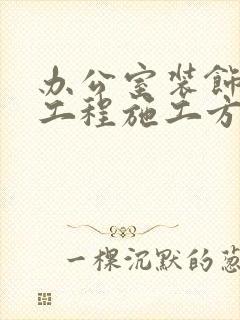 办公室装饰
工程施工方
一棵沉默的葱